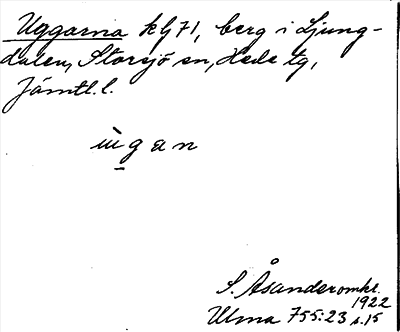 Uggarna kG71, berg i Ljung-
dalen, Storsjö sn, Hede tg,
Jämtl. l.
ùgan
S. Åsander omkr.
1922
Ulma 755:23 s. 15